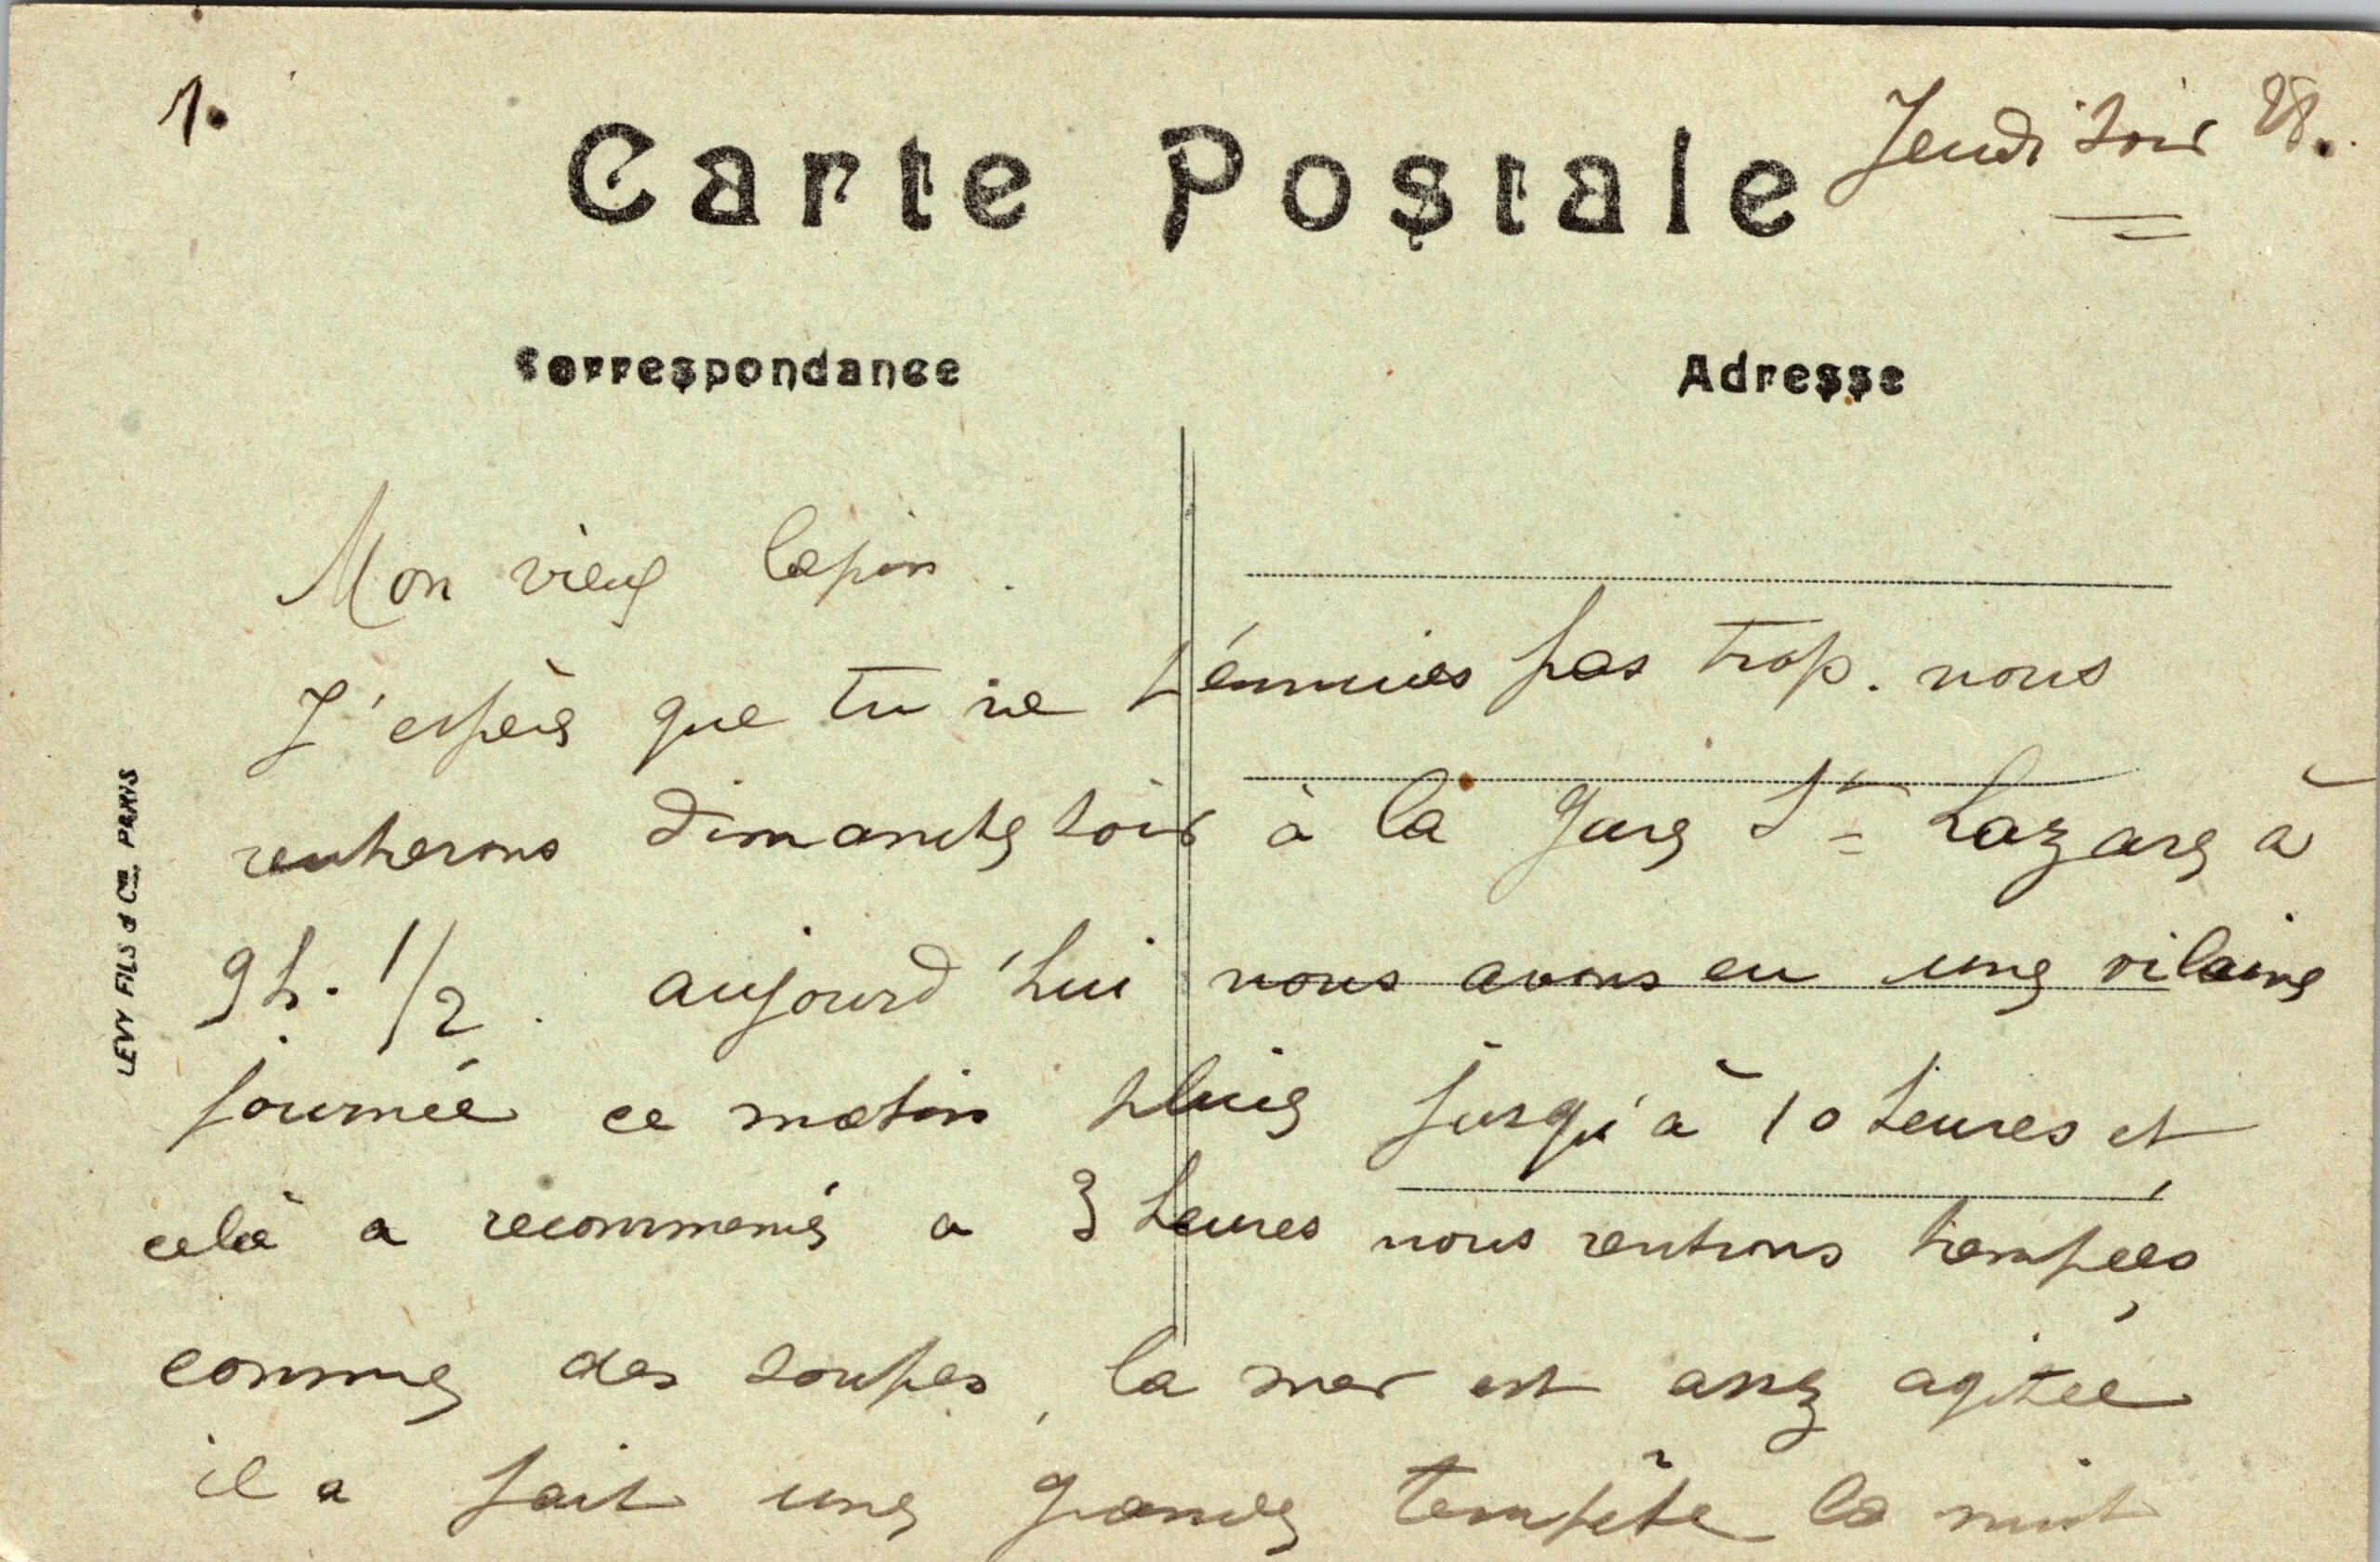 1.
Jeudi soir 28.
Carte Postale
Correspondance
Adresse
Mon vieux lapin.
J'espère que tu ne t'énnuies pas trop. nous
rentrerons dimanche soir à la gare St Lazare à
9h. 1/2. aujourd'hui nous avons eu une vilaine
journée ce matin pluie jusqu'à 10 heures et
celà a recommencé a 3 heures nous rentrons trempées
comme des soupes, la mer est assez agitée
il a fait une grande tempête la nuit
LEVY FILS & Cie PARIS